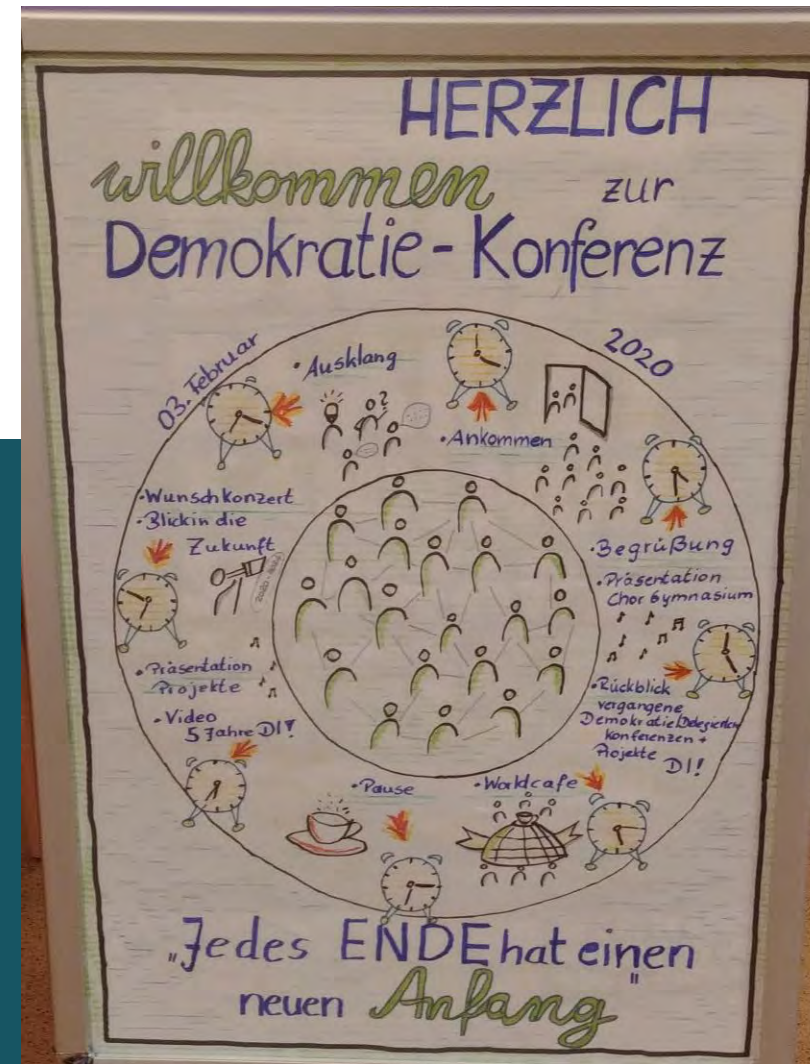 HERZLICH
willkommen zur
Demokratie-Konferenz
03. Februar 2020
• Ankommen
• Begrüßung
• Präsentation
Chor Gymnasium
• Rückblick
vergangene
Demokratie/Delegierten
Konferenzen +
Projekte DI!
• Worldcafe
• Pause
• Präsentation
Projekte
• Video
5 Jahre DI!
• Wunschkonzert
• Blick in die
Zukunft
• Ausklang
„Jedes ENDE hat einen
neuen Anfang"